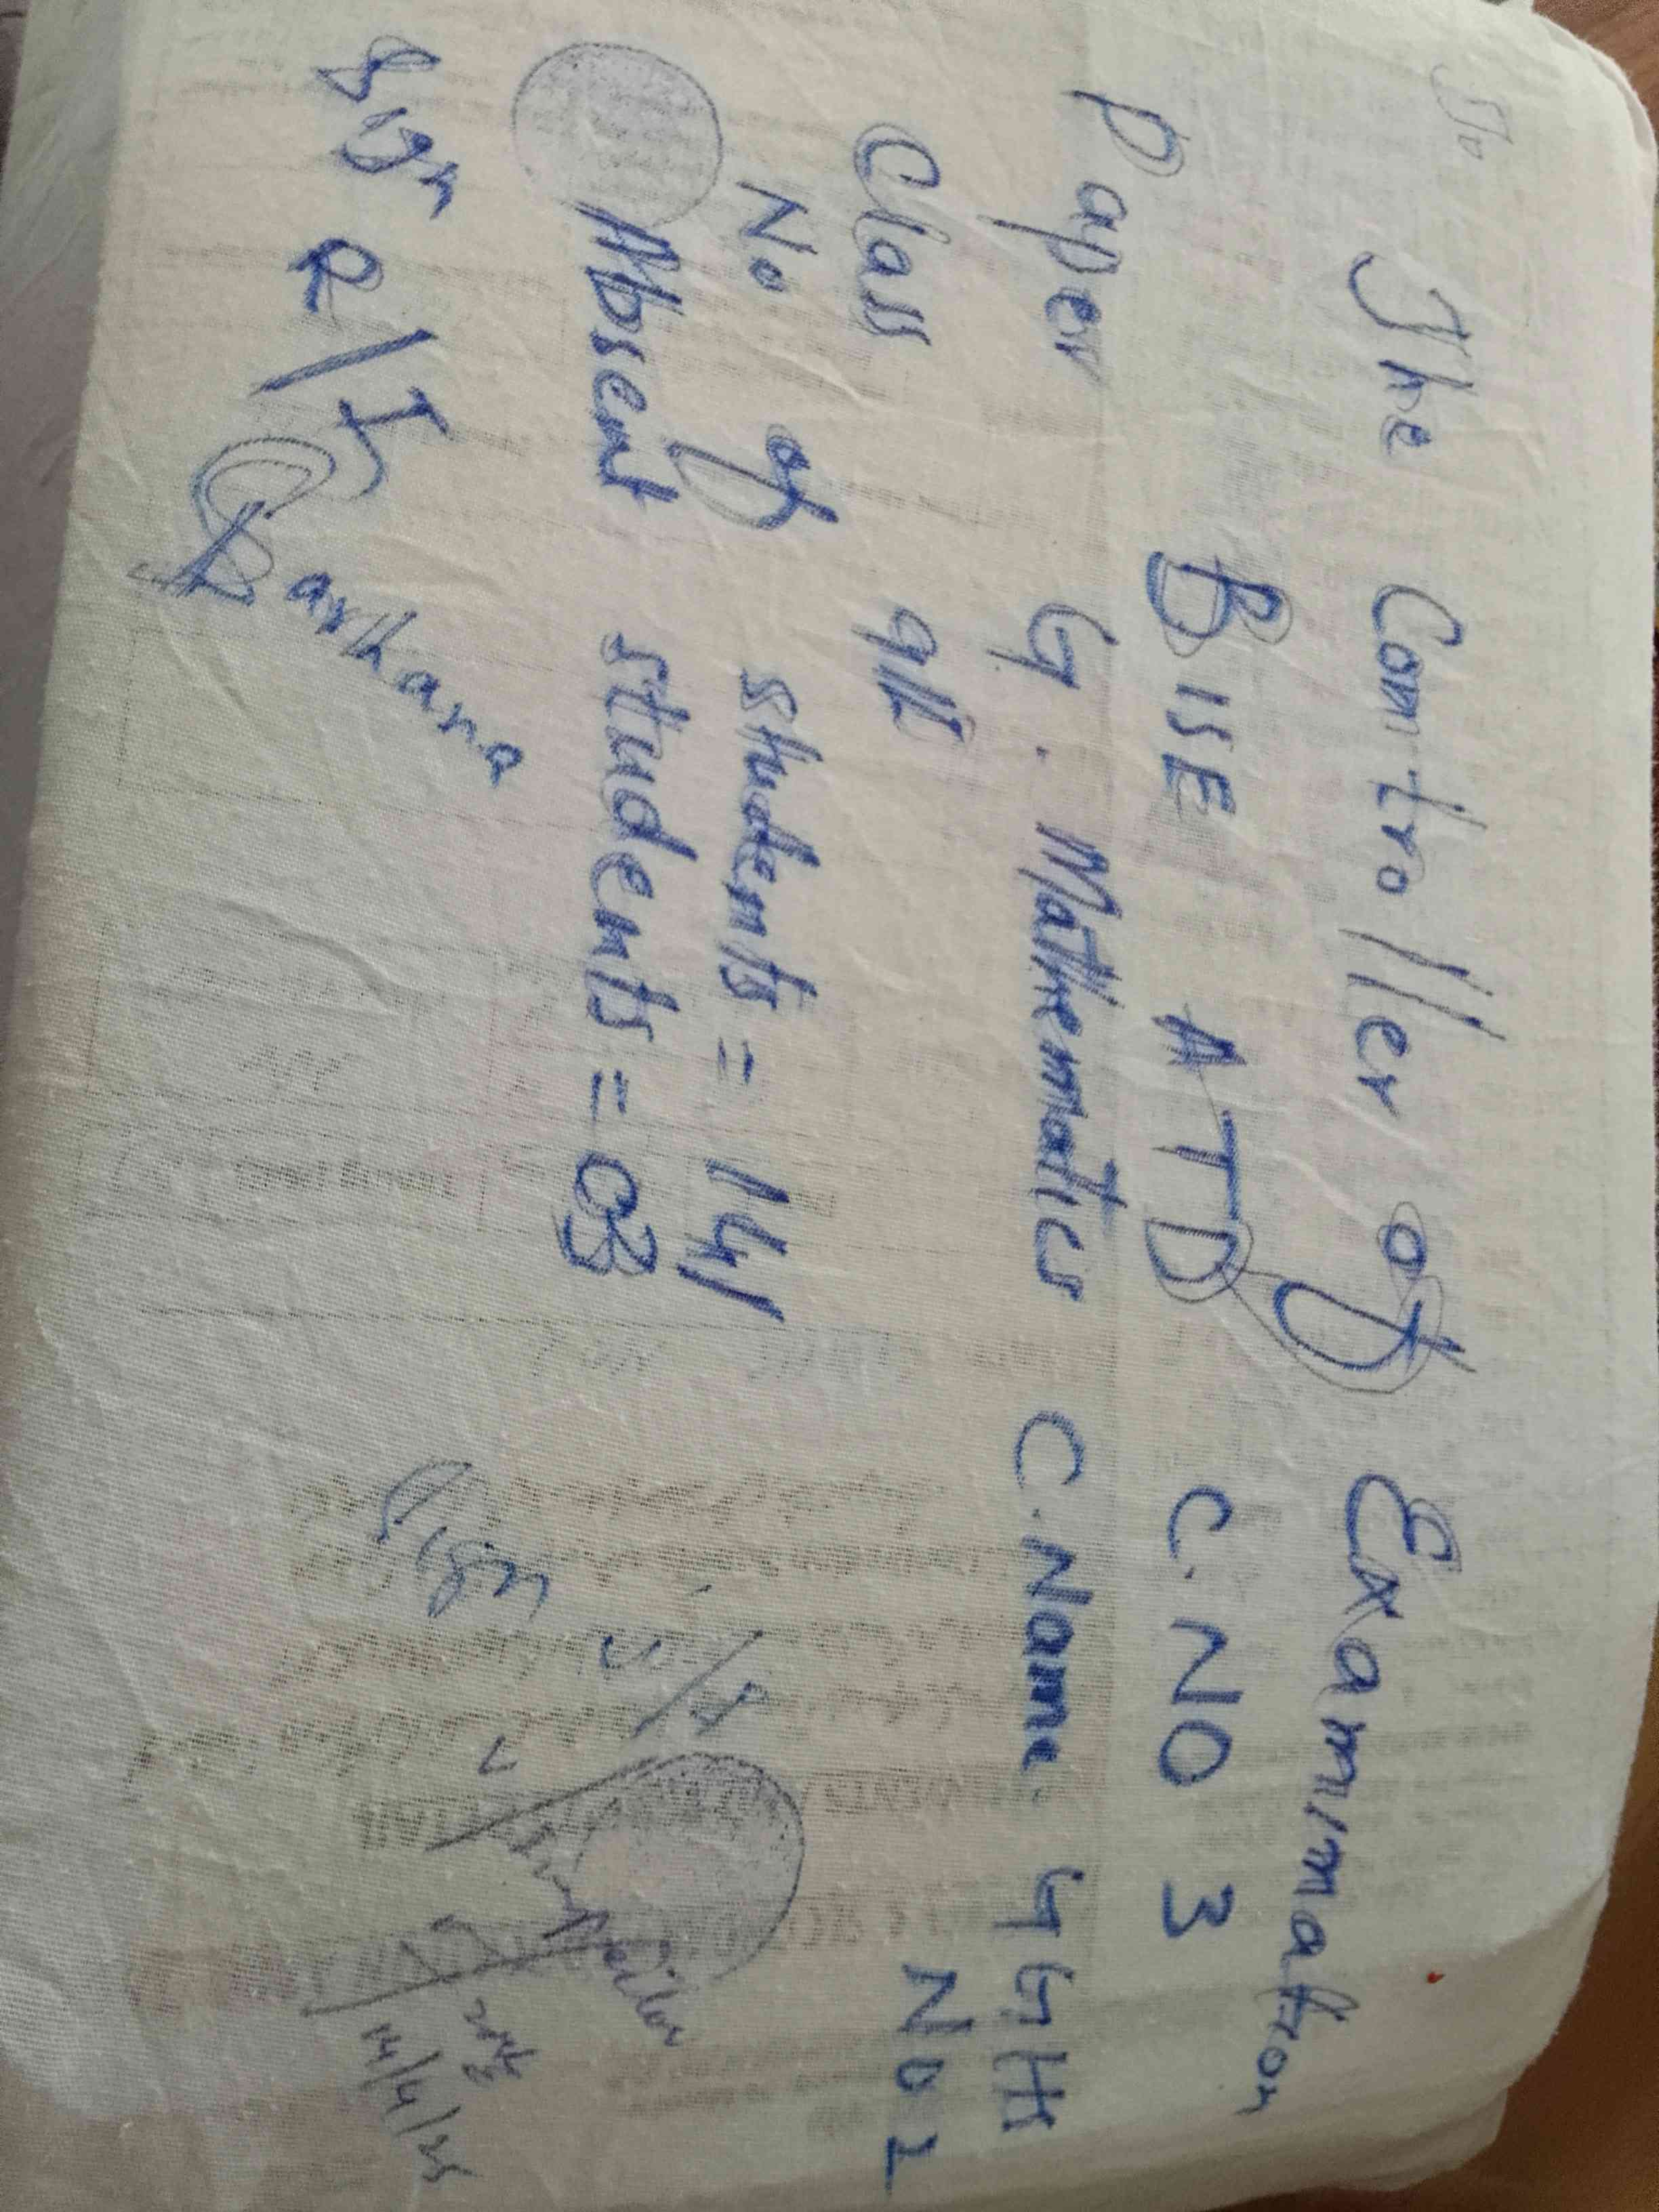 To
The Controller of Examination
BISE ATD C.NO 3
Paper G. Mathematics C.Name. GGHS
No 1
Class 9th
No of students = 141
Absent students = 03
Sign R/I
Sign
14/4/25